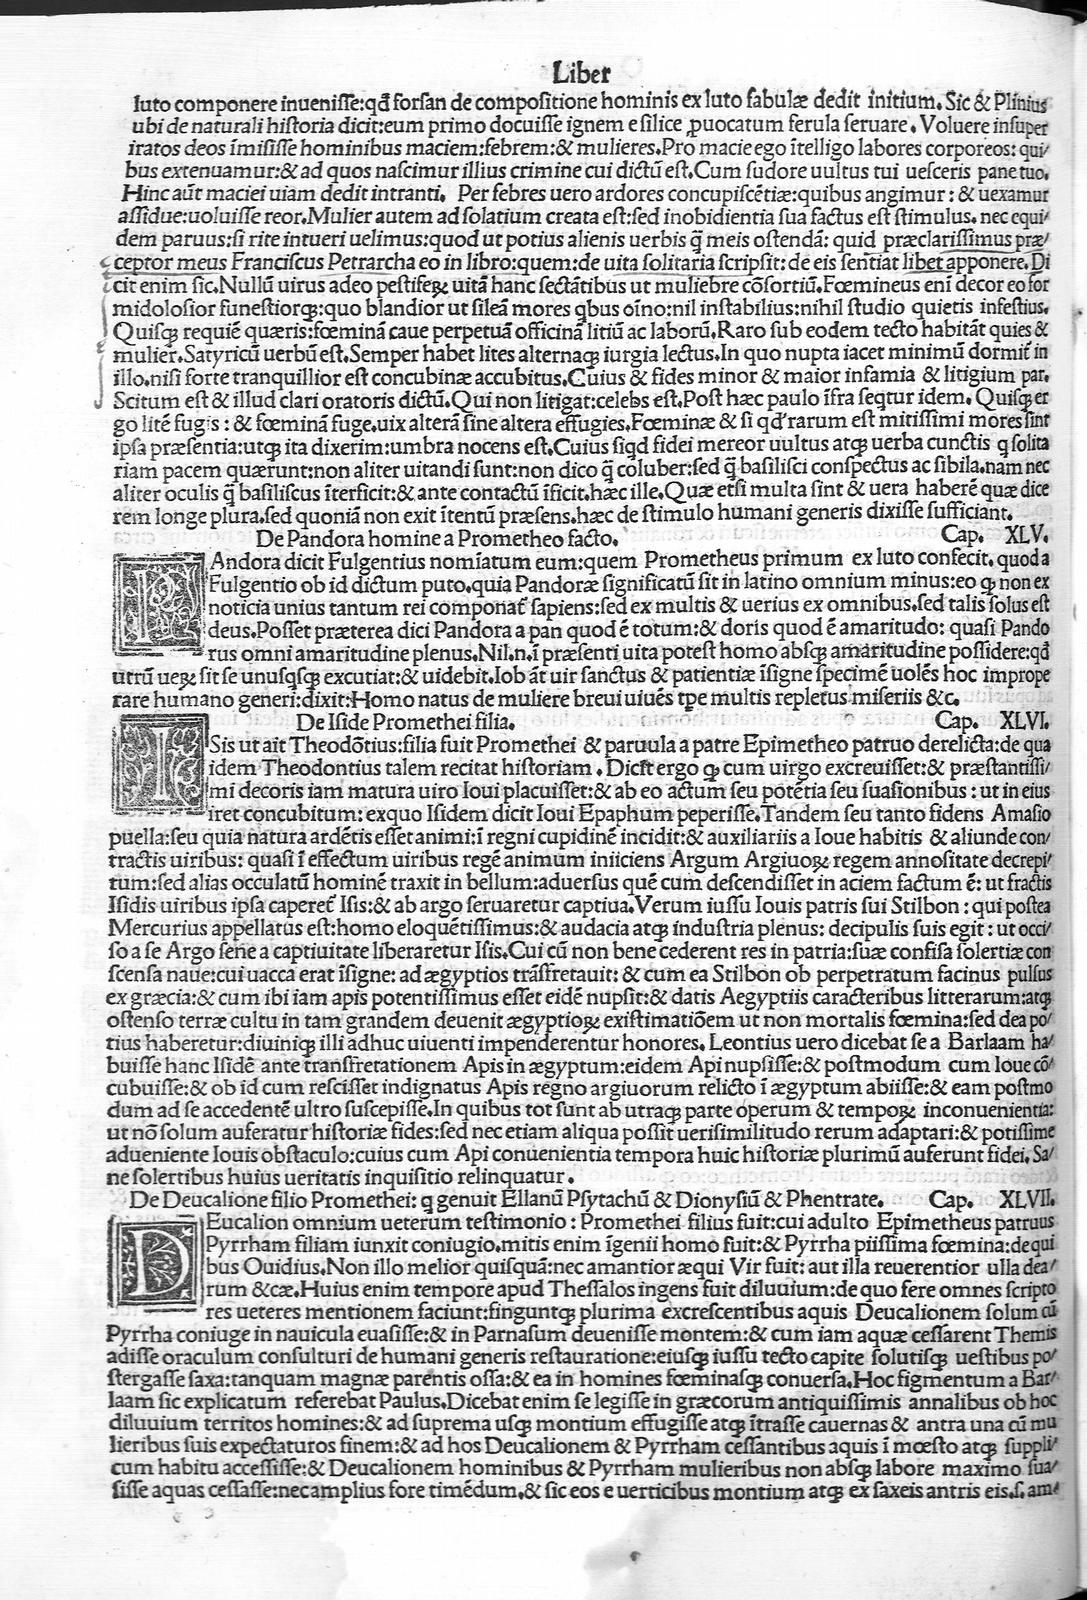 Liber
luto componere inuenisse:qđ forsan de compositione hominis ex luto fabulæ dedit initium. Sic & Plinius
ubi de naturali historia dicit:eum primo docuisse ignem e silice ꝓuocatum ferula seruare. Voluere insuper
iratos deos ĩmisisse hominibus maciem:febrem:& mulieres.Pro macie ego ĩtelligo labores corporeos: qui/
bus extenuamur:& ad quos nascimur illius crimine cui dictũ est.Cum sudore uultus tui uesceris pane tuo.
Hinc aũt maciei uiam dedit intranti. Per febres uero ardores concupiscẽtiæ:quibus angimur: & uexamur
assidue:uoluisse reor.Mulier autem ad solatium creata est:sed inobidientia sua factus est stimulus. nec equi/
dem paruus:si rite intueri uelimus:quod ut potius alienis uerbis q̃ meis ostendã: quid præclarissimus præ/
ceptor meus Franciscus Petrarcha eo in libro:quem:de uita solitaria scripsit: de eis sentiat libet apponere.Di
cit enim sic.Nullũ uirus adeo pestifeꝝ uitã hanc sectãtibus ut muliebre cõsortiũ.Fœmineus enĩ decor eo for
midolosior funestiorqȝ:quo blandior ut sileã mores qbus oĩno:nil instabilius:nihil studio quietis infestius.
Quisqȝ requiẽ quæris:fœminã caue perpetuã officinã litiũ ac laborũ.Raro sub eodem tecto habitãt quies &
mulier.Satyricũ uerbũ est.Semper habet lites alternaqȝ iurgia lectus.In quo nupta iacet minimũ dormit̃ in
illo.nisi forte tranquillior est concubinæ accubitus.Cuius & fides minor & maior infamia & litigium par.
Scitum est & illud clari oratoris dictũ.Qui non litigat:celebs est.Post hæc paulo ĩfra seqtur idem. Quisqȝ er
go litẽ fugis : & fœminã fuge.uix alterã sine altera effugies.Fœminæ & si qđ rarum est mitissimi mores sint
ipsa præsentia:utqȝ ita dixerim:umbra nocens est.Cuius siqd fidei mereor uultus atqȝ uerba cunctis q solita
riam pacem quærunt:non aliter uitandi sunt:non dico q̃ coluber:sed q̃ basilisci conspectus ac sibila.nam nec
aliter oculis q̃ basiliscus ĩterficit:& ante contactũ ĩficit.hæc ille.Quæ etsi multa sint & uera haberẽ quæ dice
rem longe plura.sed quoniã non exit ĩtentũ præsens.hæc de stimulo humani generis dixisse sufficiant.
De Pandora homine a Prometheo facto. Cap. XLV.
PAndora dicit Fulgentius nomĩatum eum:quem Prometheus primum ex luto confecit.quod a
Fulgentio ob id dictum puto.quia Pandoræ significatũ sit in latino omnium minus:eo qȝ non ex
noticia unius tantum rei componat̃ sapiens:sed ex multis & uerius ex omnibus.sed talis solus est
deus.Posset præterea dici Pandora a pan quod ẽ totum:& doris quod ẽ amaritudo: quasi Pando
rus omni amaritudine plenus.Nil.n.ĩ præsenti uita potest homo absqȝ amaritudine possidere:qđ
utrũ ueꝝ sit se unusqsqȝ excutiat:& uidebit.Iob ãt uir sanctus & patientiæ ĩsigne specimẽ uolẽs hoc imprope
rare humano generi:dixit:Homo natus de muliere breui uiuẽs tp̃e multis repletus miseriis &c.
De Iside Promethei filia. Cap. XLVI.
ISis ut ait Theodõtius:filia fuit Promethei & paruula a patre Epimetheo patruo derelicta:de qua
idem Theodontius talem recitat historiam . Dicit ergo qȝ cum uirgo excreuisset:& præstantissi/
mi decoris iam matura uiro Ioui placuisset:& ab eo actum seu potẽtia seu suasionibus : ut in eius
iret concubitum: exquo Isidem dicit Ioui Epaphum peperisse.Tandem seu tanto fidens Amasio
puella:seu quia natura ardẽtis esset animi:ĩ regni cupidinẽ incidit:& auxiliariis a Ioue habitis & aliunde con/
tractis uiribus: quasi ĩ effectum uiribus regẽ animum iniiciens Argum Argiuoꝝ regem annositate decrepi/
tum:sed alias occulatũ hominẽ traxit in bellum:aduersus quẽ cum descendisset in aciem factum ẽ: ut fractis
Isidis uiribus ipsa caperet̃ Isis:& ab argo seruaretur captiua.Verum iussu Iouis patris sui Stilbon : qui postea
Mercurius appellatus est:homo eloquẽtissimus:& audacia atqȝ industria plenus: decipulis suis egit : ut occi/
so a se Argo sene a captiuitate liberaretur Isis.Cui cũ non bene cederent res in patria:suæ confisa solertiæ con
scensa naue:cui uacca erat ĩsigne: ad ægyptios trãsfretauit: & cum ea Stilbon ob perpetratum facinus pulsus
ex græcia:& cum ibi iam apis potentissimus esset eidẽ nupsit:& datis Aegyptiis caracteribus litterarum:atqȝ
ostenso terræ cultu in tam grandem deuenit ægyptioꝝ existimatiõem ut non mortalis fœmina:sed dea po/
tius haberetur:diuiniqȝ illi adhuc uiuenti impenderentur honores. Leontius uero dicebat se a Barlaam ha/
buisse hanc Isidẽ ante transfretationem Apis in ægyptum:eidem Api nupsisse:& postmodum cum Ioue cõ/
cubuisse:& ob id cum rescisset indignatus Apis regno argiuorum relicto ĩ ægyptum abiisse:& eam postmo
dum ad se accedentẽ ultro suscepisse.In quibus tot sunt ab utraqȝ parte operum & tempoꝝ inconuenientia:
ut nõ solum auferatur historiæ fides:sed nec etiam aliqua possit uerisimilitudo rerum adaptari:& potissime
adueniente Iouis obstaculo:cuius cum Api conuenientia tempora huic historiæ plurimũ auferunt fidei. Sa/
ne solertibus huius ueritatis inquisitio relinquatur.
De Deucalione filio Promethei: q genuit Ellanũ Psytachũ & Dionysiũ & Phentrate. Cap. XLVII.
DEucalion omnium ueterum testimonio : Promethei filius fuit:cui adulto Epimetheus patruus
Pyrrham filiam iunxit coniugio.mitis enim ĩgenii homo fuit:& Pyrrha piissima fœmina:de qui
bus Ouidius.Non illo melior quisquã:nec amantior æqui Vir fuit: aut illa reuerentior ulla dea/
rum &cæ.Huius enim tempore apud Thessalos ingens fuit diluuium:de quo fere omnes scripto
res ueteres mentionem faciunt:finguntqȝ plurima excrescentibus aquis Deucalionem solum cũ
Pyrrha coniuge in nauicula euasisse:& in Parnasum deuenisse montem:& cum iam aquæ cessarent Themis
adisse oraculum consulturi de humani generis restauratione:eiusqȝ iussu tecto capite solutisqȝ uestibus po/
stergasse saxa:tanquam magnæ parentis ossa:& ea in homines fœminasqȝ conuersa.Hoc figmentum a Bar/
laam sic explicatum referebat Paulus.Dicebat enim se legisse in græcorum antiquissimis annalibus ob hoc
diluuium territos homines:& ad suprema usqȝ montium effugisse atqȝ ĩtrasse cauernas & antra una cũ mu
lieribus suis expectaturos finem:& ad hos Deucalionem & Pyrrham cessantibus aquis ĩ mœsto atqȝ suppli/
cum habitu accessisse:& Deucalionem hominibus & Pyrrham mulieribus non absqȝ labore maximo sua/
sisse aquas cessasse:nec amplius fore timẽdum.& sic eos e uerticibus montium atqȝ ex saxeis antris eis.s.am/